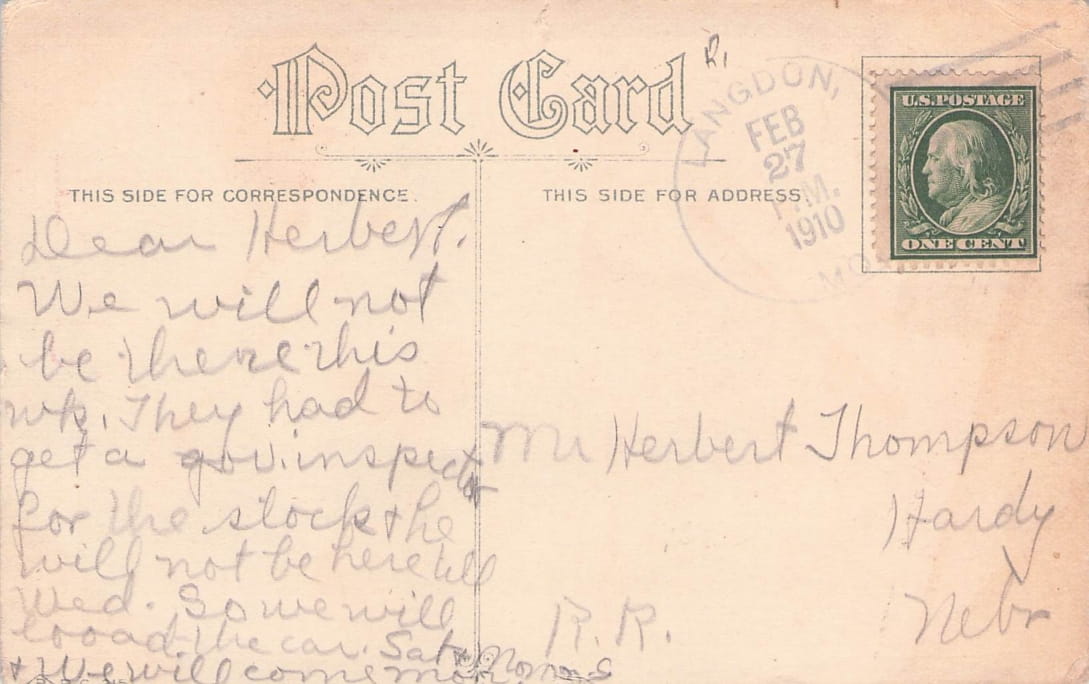 Post Card
R.
LANGDON,
FEB
27
P.M.
1910
MO
U.S. POSTAGE
ONE CENT
THIS SIDE FOR CORRESPONDENCE.
THIS SIDE FOR ADDRESS.
Dear Herbert.
We will not
be there this
wk. They had to
get a gov. inspector
for the stock & he
will not be here till
Wed. So we will
looad the car. Sat
& We will come mon.
Mr Herbert Thompson
Hardy
Nebr
R.R.